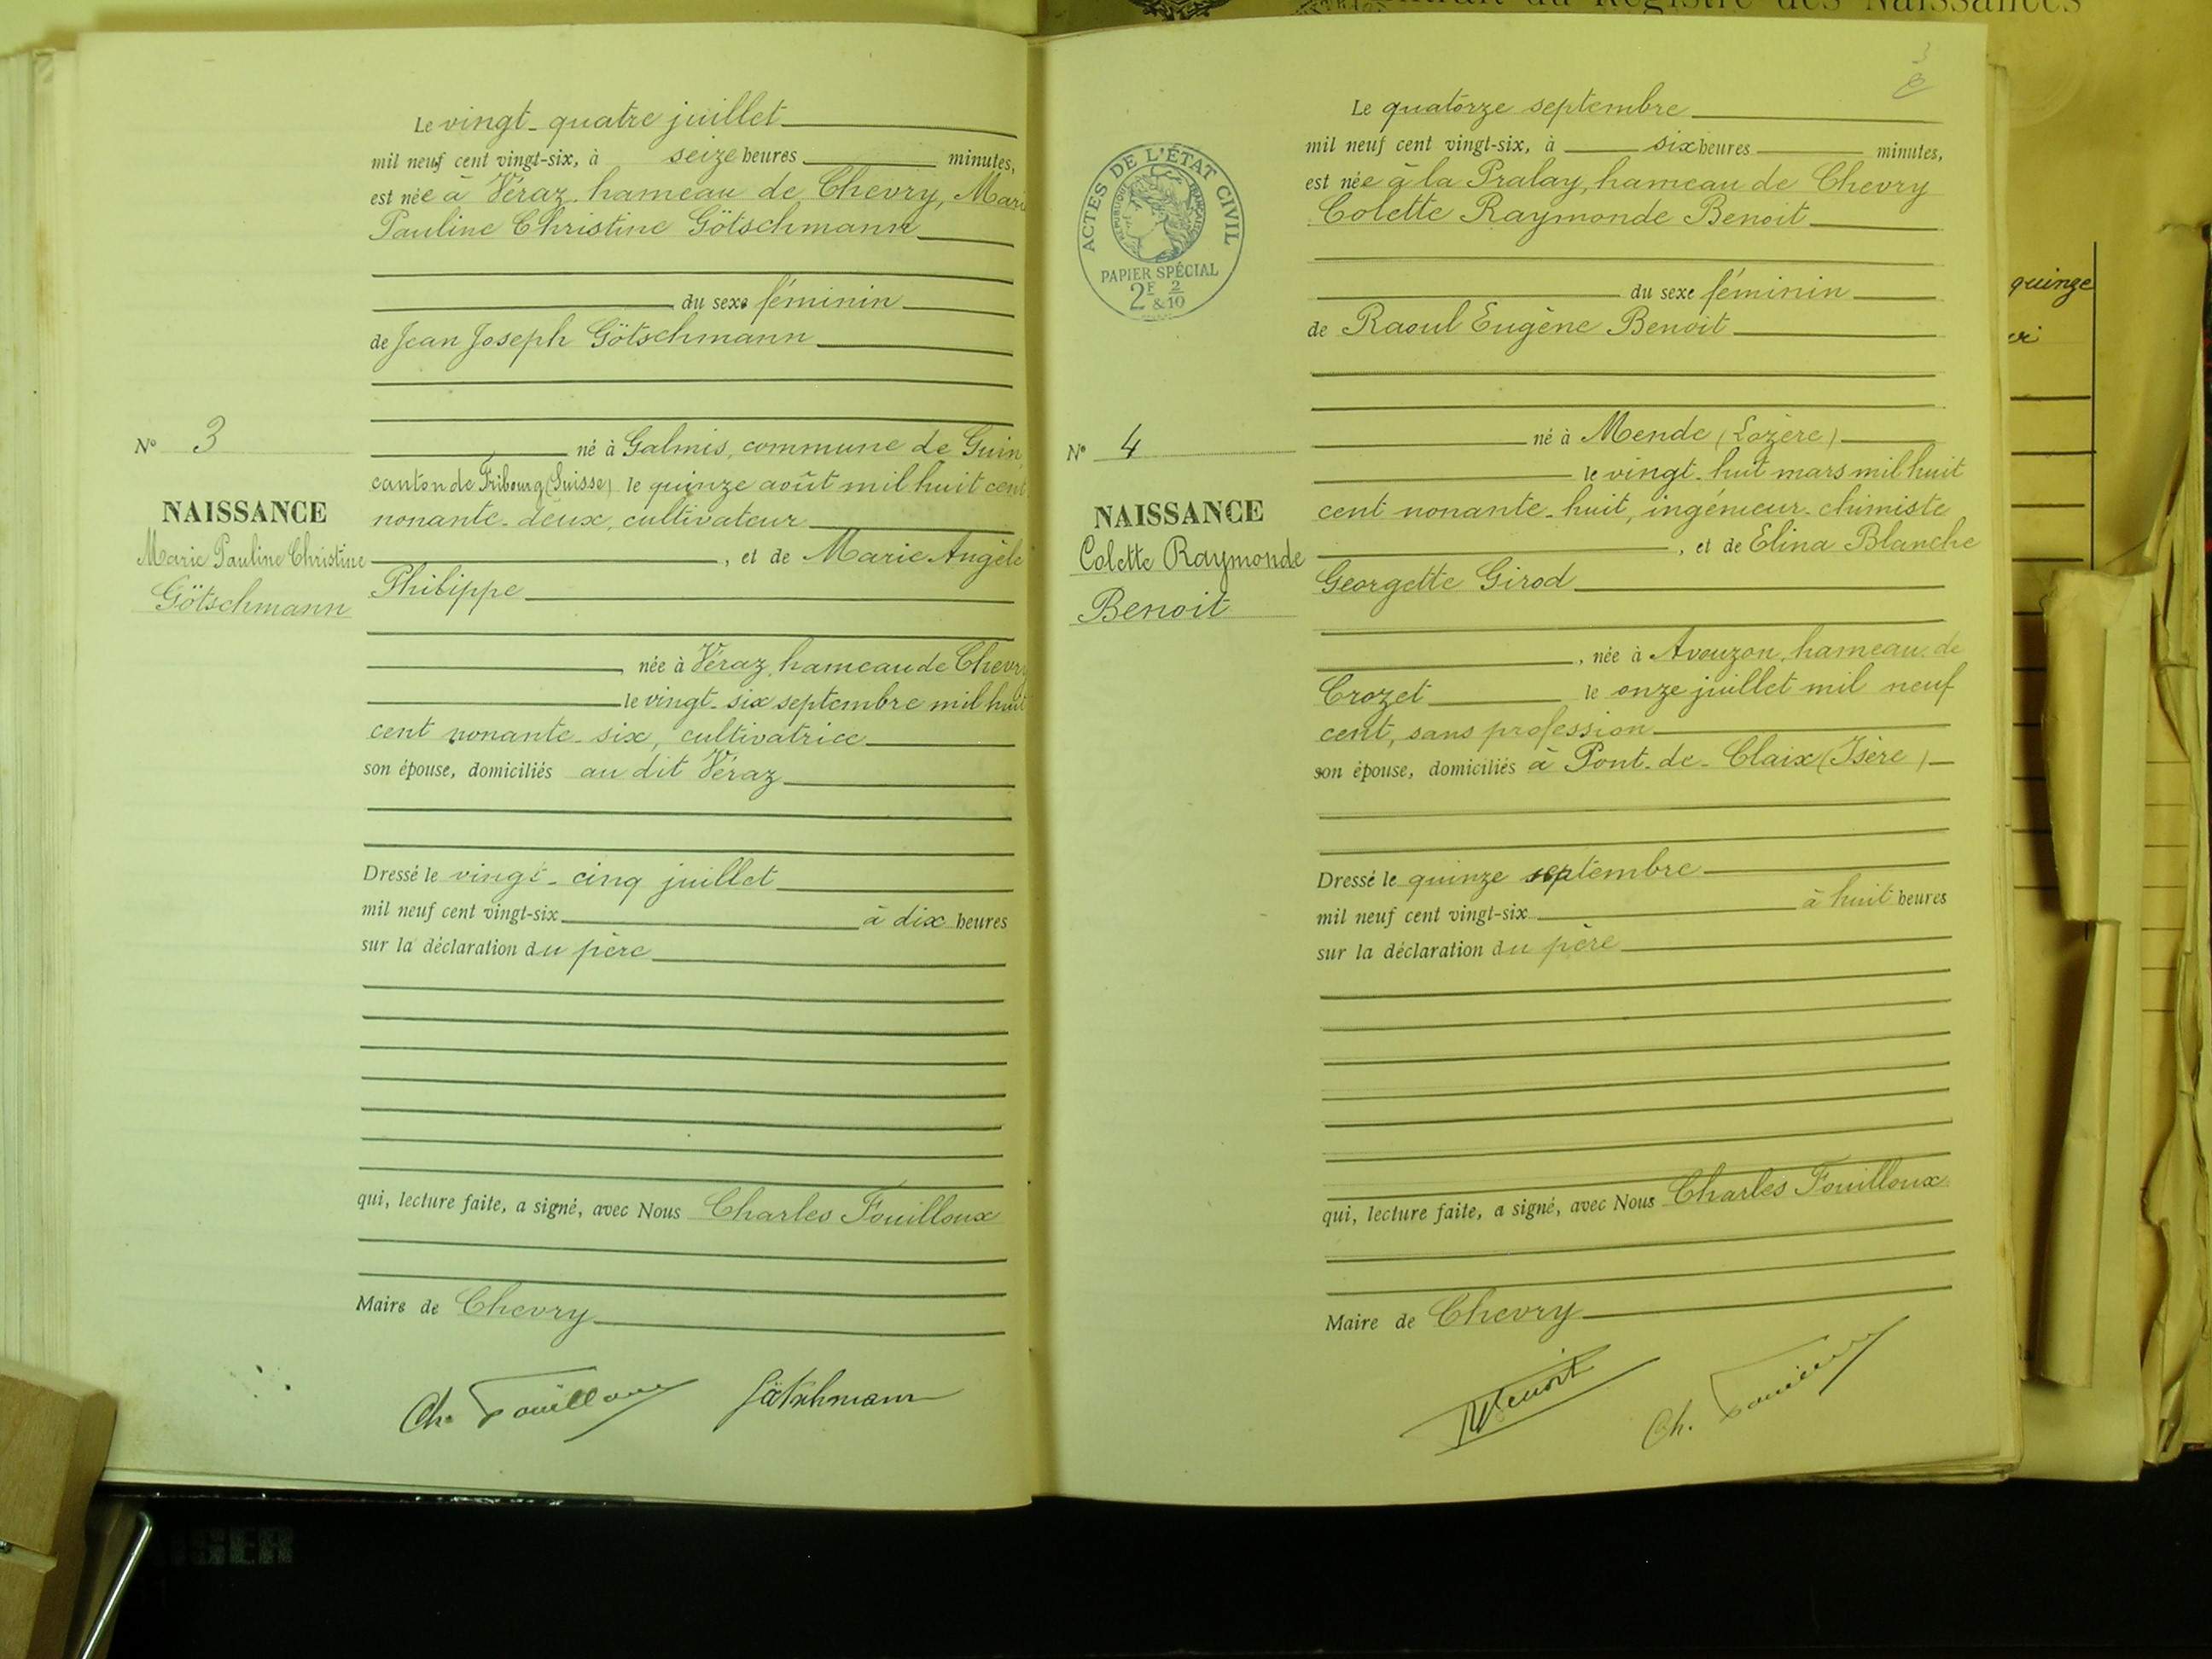 Extrait du Registre des Naissances
Le vingt-quatre juillet
mil neuf cent vingt-six, à seize heures minutes,
est née à Véraz, hameau de Chevry, Marie
Pauline Christine Götschmann
du sexe féminin
de Jean Joseph Götschmann
N° 3
né à Galmis, commune de Guin,
canton de Fribourg (Suisse) le quinze août mil huit cent
NAISSANCE
nonante-deux, cultivateur
Marie Pauline Christine
Götschmann
, et de Marie Angèle
Philippe
née à Véraz, hameau de Chevry
le vingt-six septembre mil huit
cent nonante-six, cultivatrice
son épouse, domiciliés au dit Véraz
Dressé le vingt-cinq juillet
mil neuf cent vingt-six à dix heures
sur la déclaration du père
qui, lecture faite, a signé, avec Nous Charles Fouilloux
Maire de Chevry
Ch. Fouilloux Götschmann
3
Le quatorze septembre
mil neuf cent vingt-six, à six heures minutes,
est née à la Pralay, hameau de Chevry
Colette Raymonde Benoit
ACTES DE L'ÉTAT CIVIL
RÉPUBLIQUE FRANÇAISE
PAPIER SPÉCIAL
2F & 2/10
du sexe féminin
de Raoul Eugène Benoit
N° 4
né à Mende (Lozère)
le vingt-huit mars mil huit
NAISSANCE
cent nonante-huit, ingénieur-chimiste
Colette Raymonde
Benoit
, et de Elina Blanche
Georgette Girod
, née à Avouzon, hameau de
Crozet le onze juillet mil neuf
cent, sans profession
son épouse, domiciliés à Pont-de-Claix (Isère)
Dressé le quinze septembre
mil neuf cent vingt-six à huit heures
sur la déclaration du père
qui, lecture faite, a signé, avec Nous Charles Fouilloux
Maire de Chevry
RBenoit Ch. Fouilloux
quinze